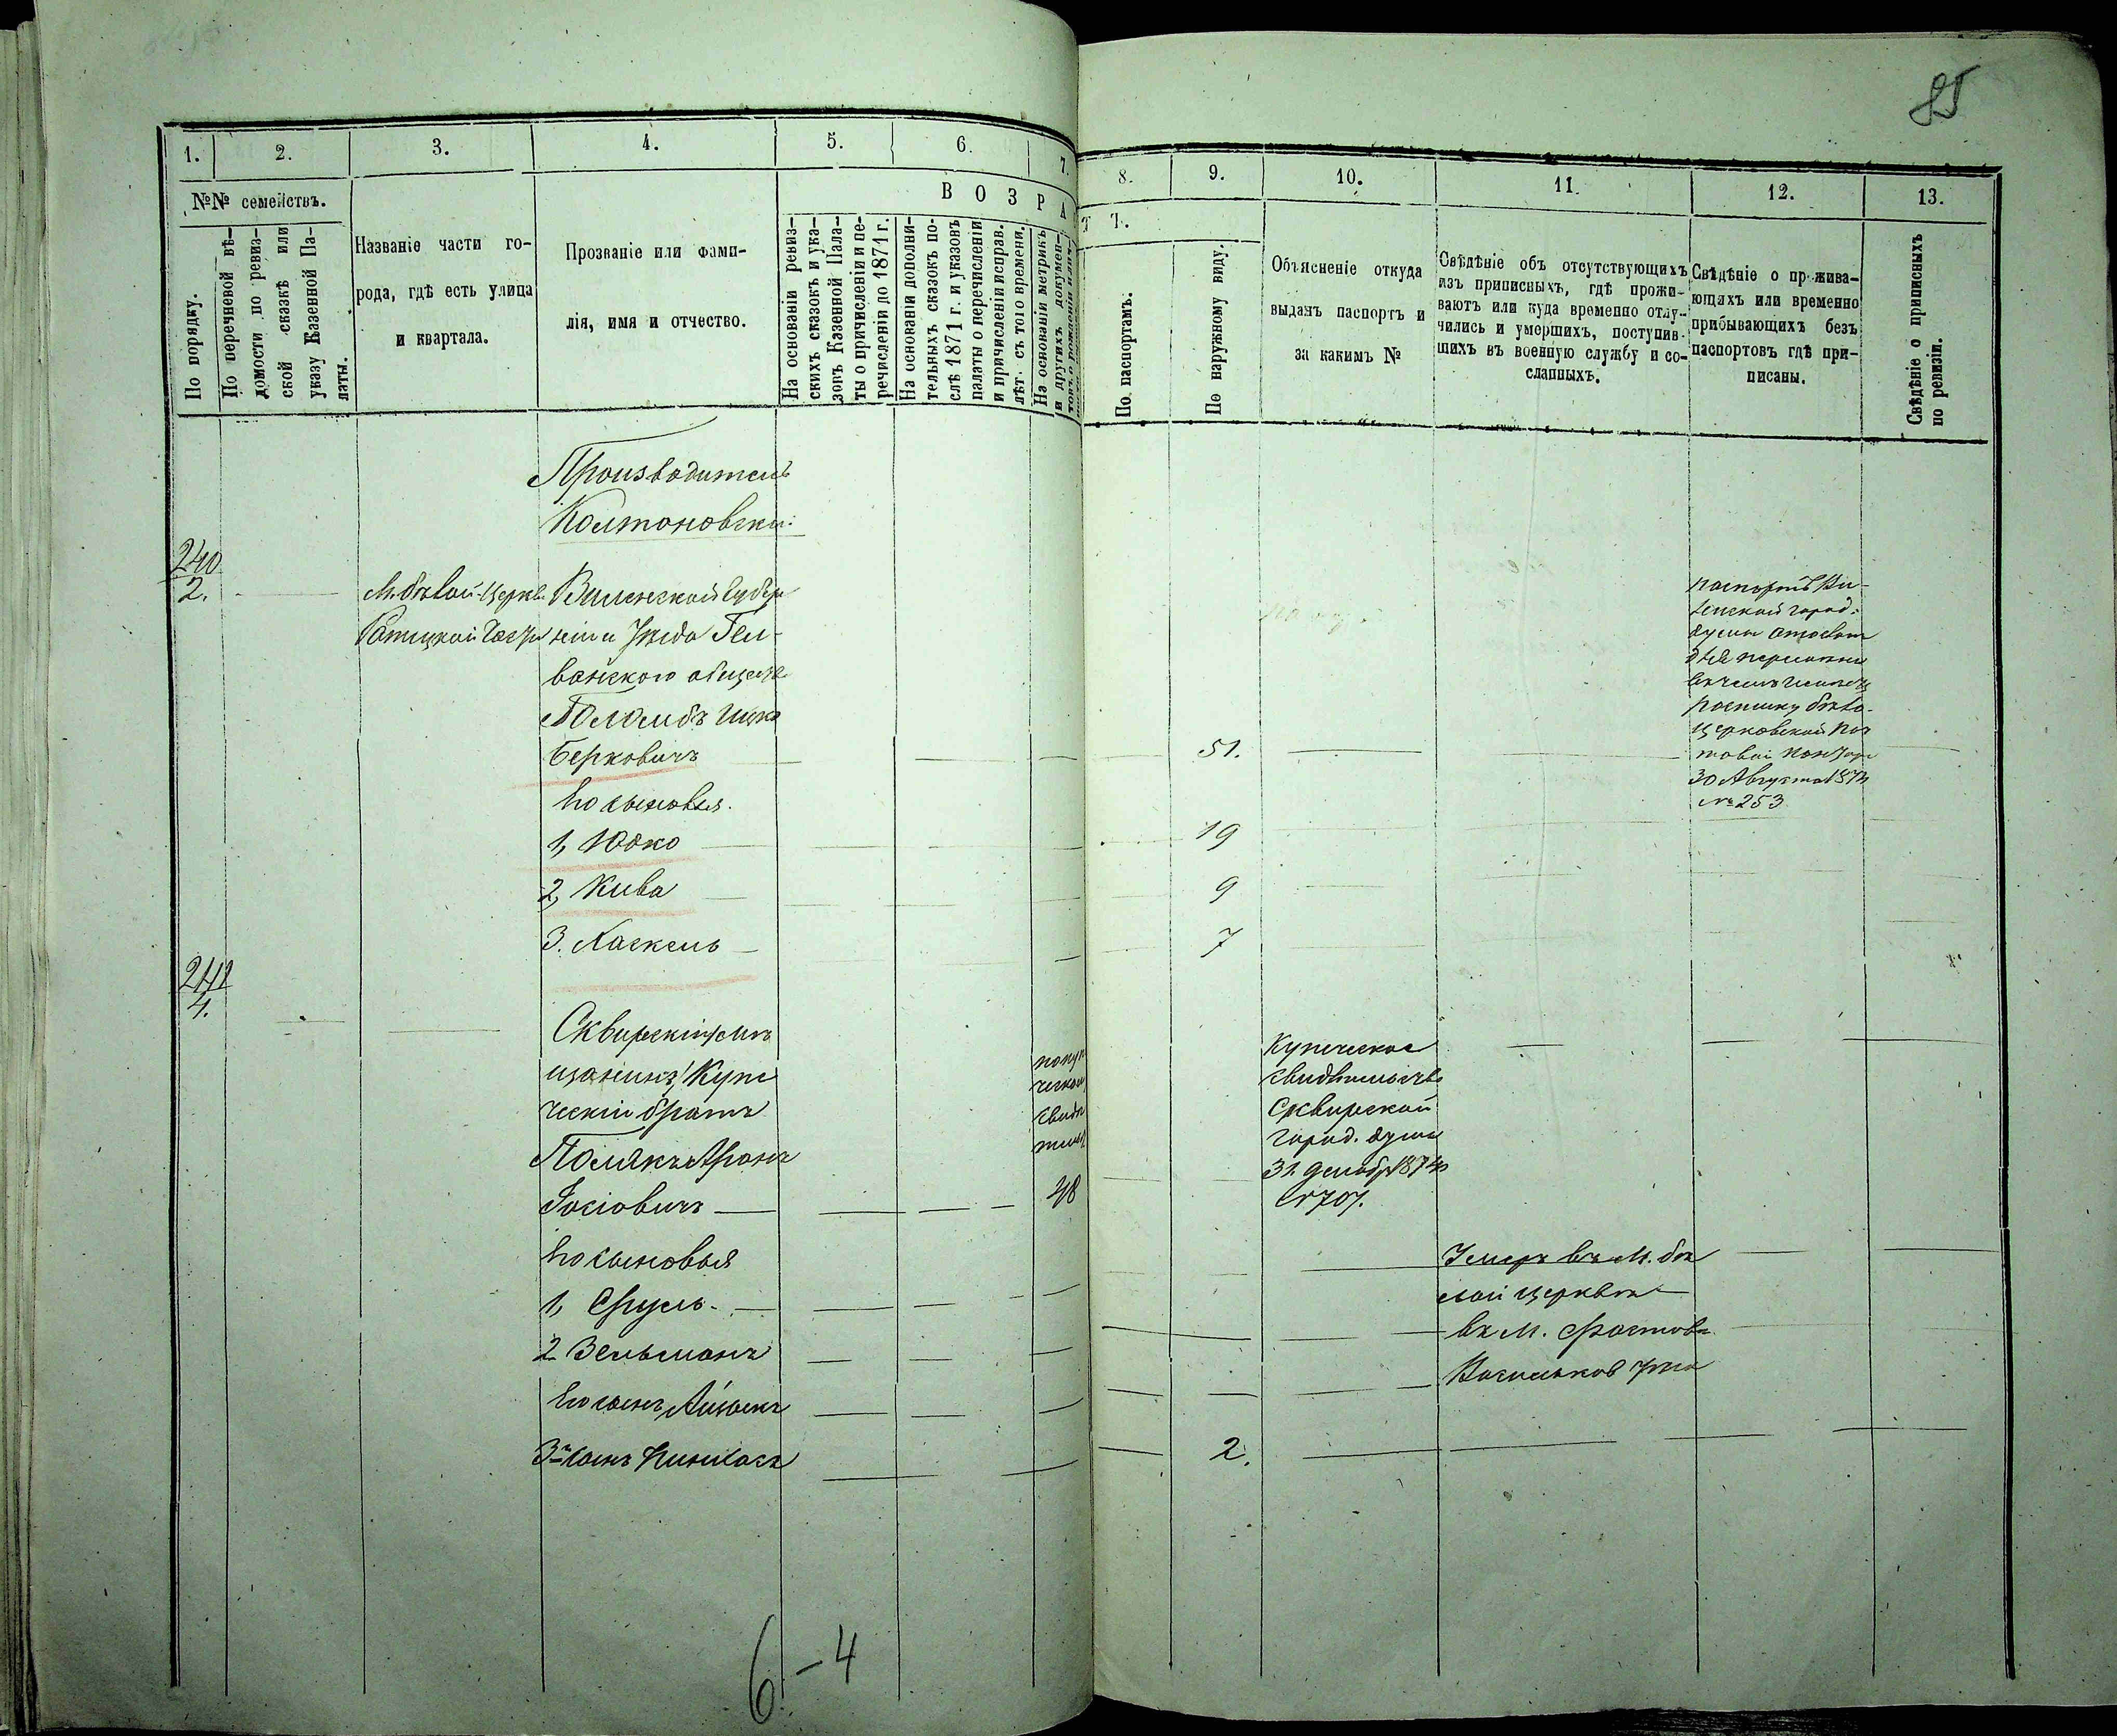 85
1.
2.
3.
4.
5.
6.
7.
8.
9.
10.
11.
12.
13.
№№ семействъ.
По порядку.
По перечневой вѣ-
домости по ревиз-
ской сказкѣ или
указу Казенной Па-
латы.
Названіе части го-
рода, гдѣ есть улица
и квартала.
Прозваніе или фами-
лія, имя и отчество.
В О З Р А
С Т Т.
На основаніи ревиз-
скихъ сказокъ и ука-
зовъ Казенной Пала-
ты о причисленіи и пе-
речисленіи до 1871 г.
На основаніи дополни-
тельныхъ сказокъ по-
слѣ 1871 г. и указовъ
палаты о перечисленіи
и причисленіи исправ.
лѣт. съ того времени.
На основаніи метрикъ
и другихъ докумен-
товъ о рожденіи
По паспортамъ.
По наружному виду.
Объясненіе откуда
выданъ паспортъ и
за какимъ №
Свѣдѣніе объ отсутствующихъ
изъ приписныхъ, гдѣ прожи-
ваютъ или куда временно отлу-
чились и умершихъ, поступив-
шихъ въ военную службу и со-
сланныхъ.
Свѣдѣніе о прожива-
ющихъ или временно
прибывающихъ безъ
паспортовъ гдѣ при-
писаны.
Свѣдѣніе о приписныхъ
по ревизіи.
Производитель
Колтоновскі:
240
2.
М. бѣлой Церкв
части
Виленской Губер
ніи и Уѣзда Гел-
ванского общества
Голомбъ Ицко
Берковичъ
51.
паспортъ Ви-
ленской город.
думы отослан
для перемѣны
въ чемъ имѣетъ
росписку бѣло-
церковской поч
товой контор
30 Августа 1874
№ 253
Его сыновья.
1, Юдко
19
2, Кива
9
3. Хаскель
7
241
4.
Сквирскій мѣ
щанинъ/Купе
ческій братъ
Полякъ Аронъ
Іосіовичъ
по купе
ческом
свидѣ
тельс
48
Купеческое
свидѣтельство
Сквирской
город. думы
31 декабр 1874
№ 707.
Его сыновья
1, Сруль
Умеръ въ М. бѣ
лой церквѣ
2 Зельманъ
въ М. Фастовѣ
Васильков уѣзд
Его сынъ Айзыкъ
3й сынъ Пинхасъ
2.
6 – 4